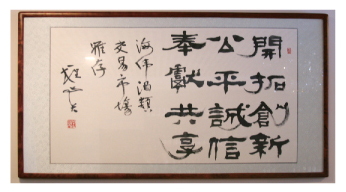 開拓創新
公平誠信
奉獻共享
海伟泊頭
交易市場
雅存